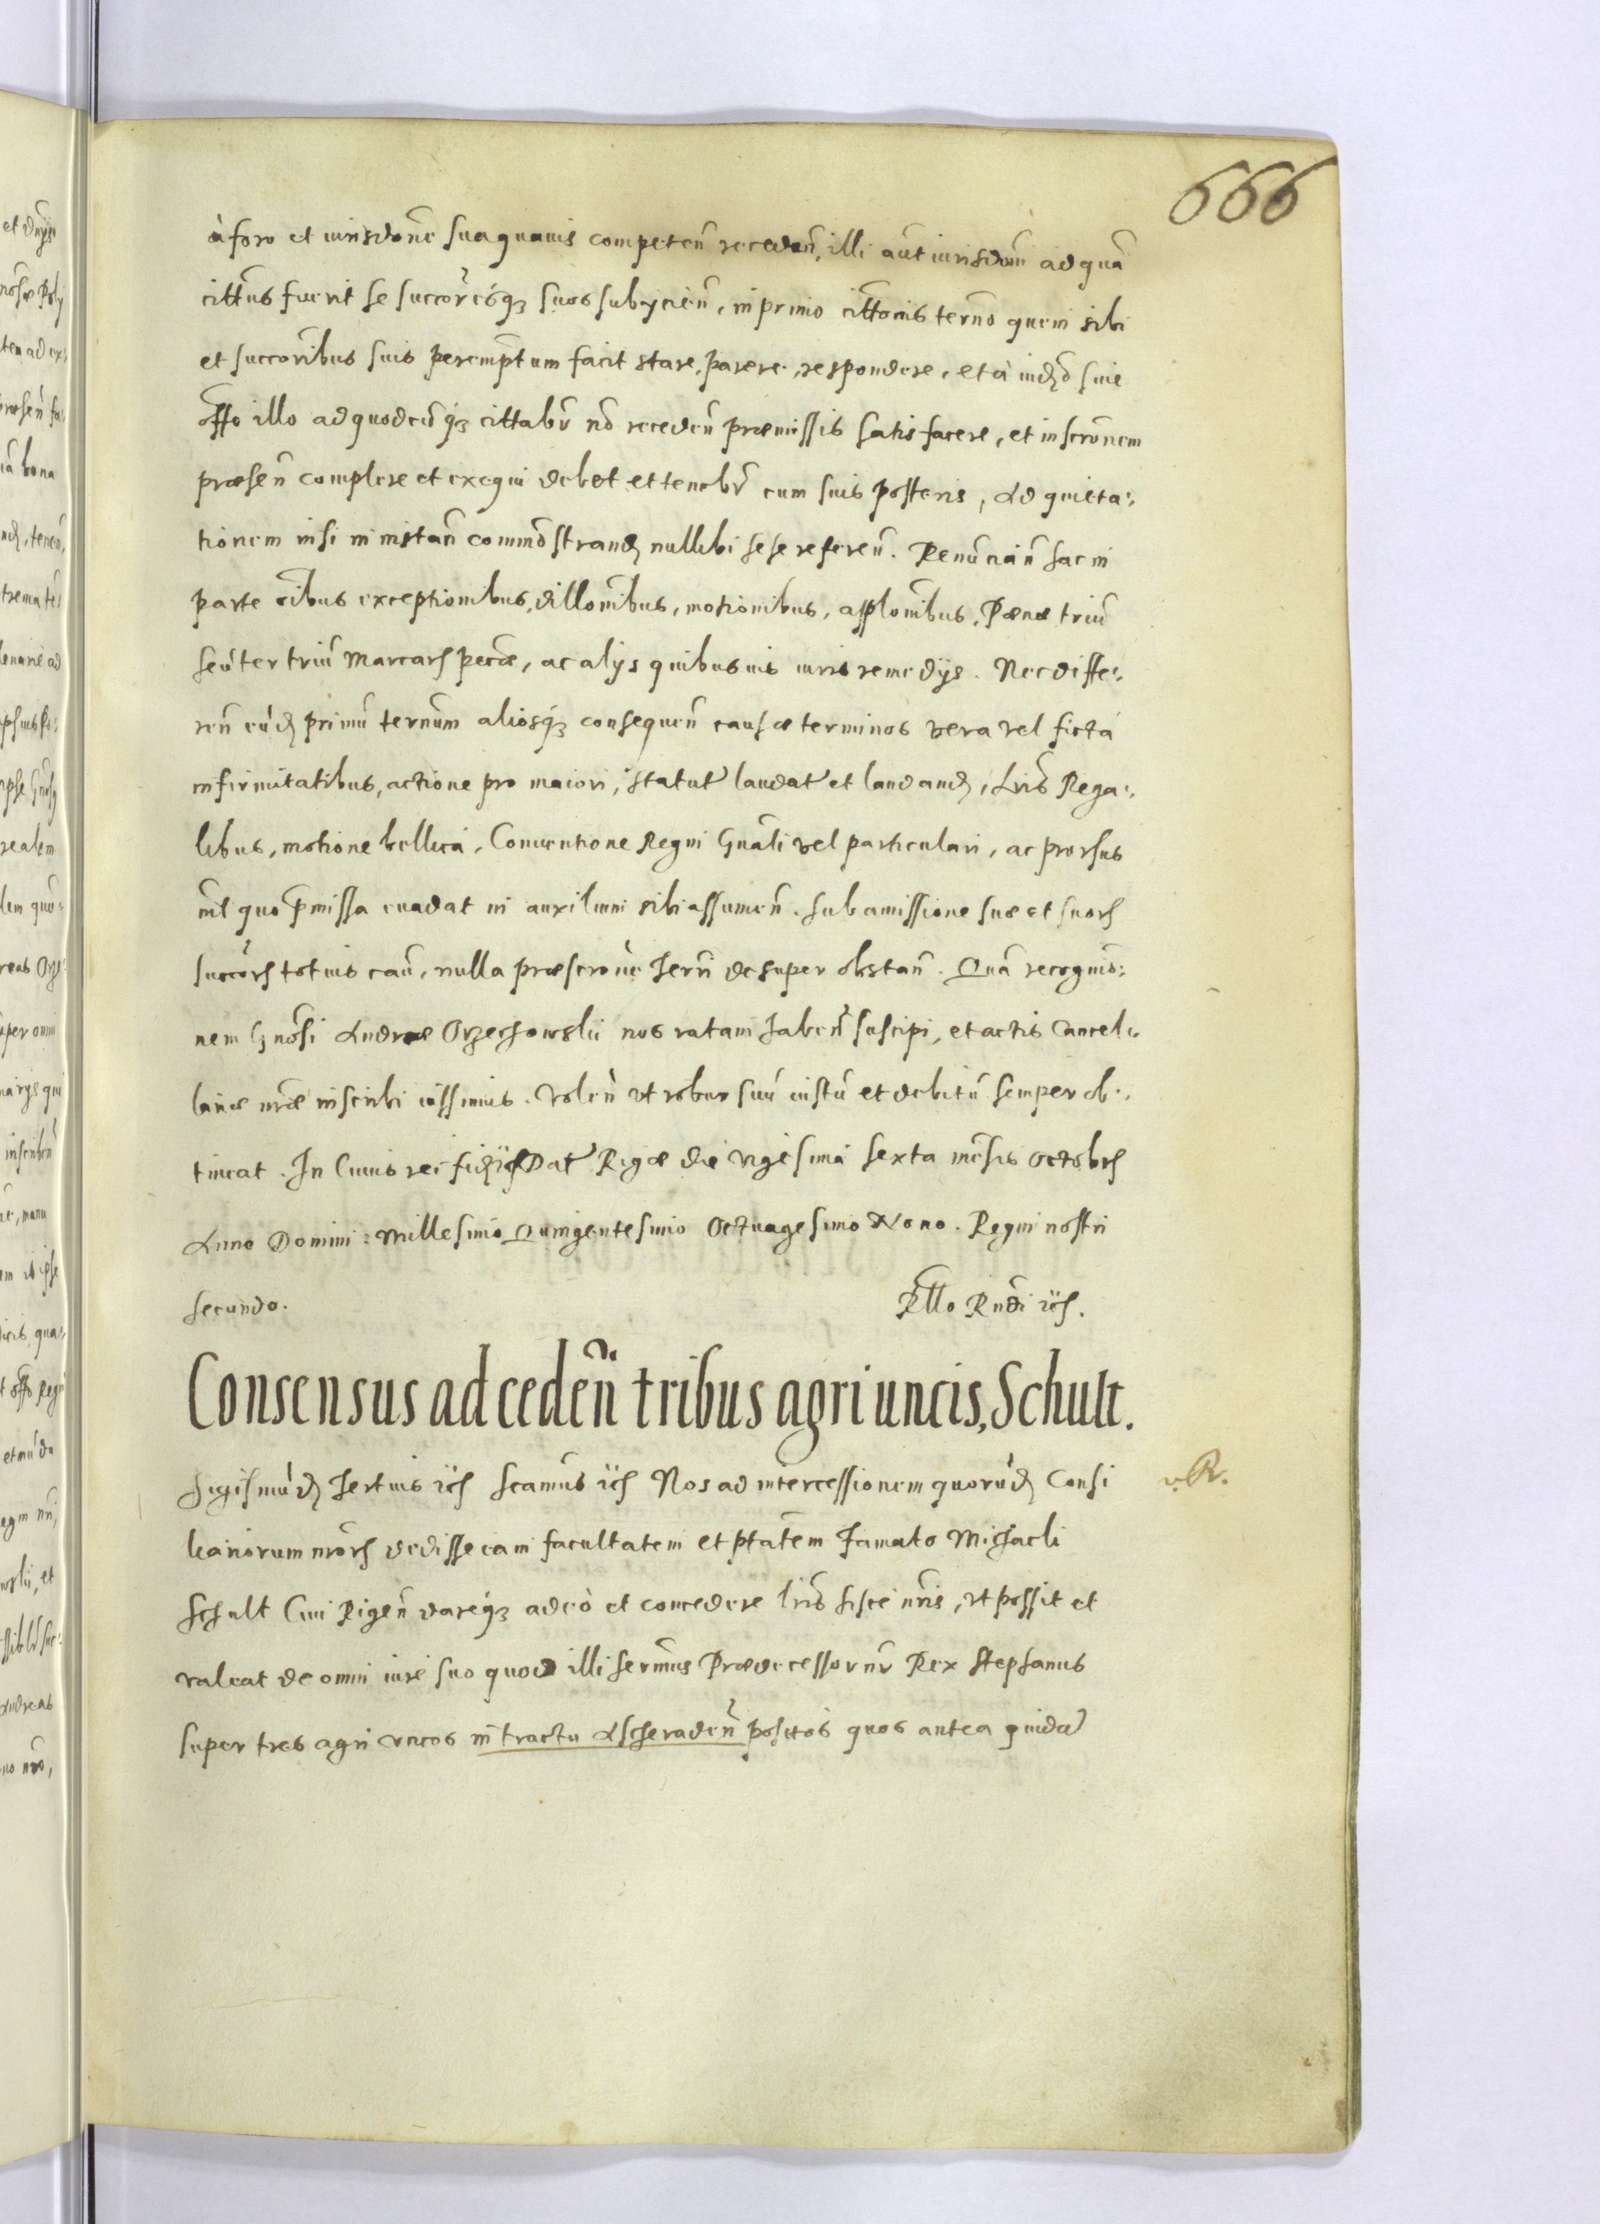 666
à foro et iurisdone sua quauis competen̄ receden̄, illi aut̄ iurisdoni ad quā
cittus fuerit se succoresq3 suos subijcien̄, in primo cittonis termo quem sibi
et succoribus suis peremptum facit stare, parere, respondere, et à iudo siue
offo illo ad quodcūq3 cittabr̄ nō receden̄ præmissis satisfacere, et inscronem
præsen̄ complere et exequi debet et tenebr̄ cum suis posteris, Ad quieta:
tionem nisi in instan̄ commōstrand nullibi sese referen̄. Renuncian̄ hac in
parte oībus exceptionibus, dillonibus, motionibus, applonibus, Pænæ triū
seu ter triū Marcarū pecæ, ac alijs quibusuis iuris remedijs. Nec diffe:
ren̄ eūd primū termum aliosq3 consequen̄ causæ terminos vera vel ficta
infirmitatibus, actione pro maiori, statut laudat et laudand, Lris Rega:
libus, motione bellica, Conuentione Regni Gnāli vel particulari, ac prorsus
nil quo pmissa euadat in auxilium sibi assumen̄. Sub amissione suæ et suorū
succorū totius caū, nulla præscrone terrū desuper obstan̄. Quā recognio:
nem Gnosi Andreæ Orzechowskii nos ratam haben̄ suscipi, et actis Cancel:
lariæ nræ inscribi iussimus. Volen̄ vt robur suū iustū et debitū semper ob:
tineat. In Cuius rei fid iĉh Dat Rigæ die vigesima sexta mēsis Octobrs
Anno Domini: Millesimo Quingentesimo Octuagesimo Nono. Regni nostri
secundo. Rllo Rndi iĉh.
Consensus ad ceden̄ tribus agri uncis, Schult.
Sigismūd Tertius iĉh Scamus iĉh Nos ad intercessionem quorūd Consi
v. R.
liariorum nrorū dedisse eam facultatem et ptatem Famato Michaeli
Schult Ciui Rigen̄ dareq3 adeò et concedere lris hisce nris, vt possit et
valeat de omni iure suo quod illi sermus Prædecessor nr Rex Stephanus
super tres agri vncos in tractu Ascheraden̄ positos quos antea quidā